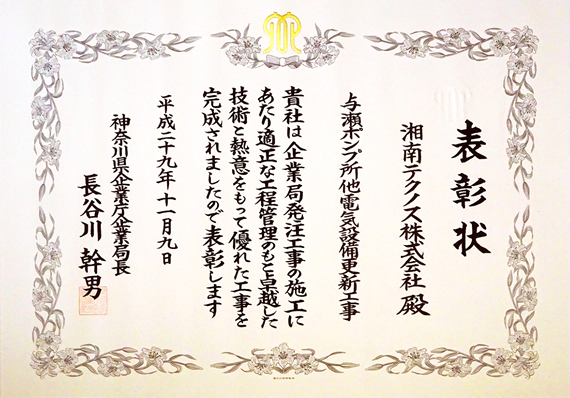 表彰状
湘南テクノス株式会社 殿
与瀬ポンプ所他電気設備更新工事
貴社は企業局発注工事の施工に
あたり適正な工程管理のもと卓越した
技術と熱意をもって優れた工事を
完成されましたので表彰します
平成二十九年十一月九日
神奈川県企業庁企業局長
長谷川 幹男